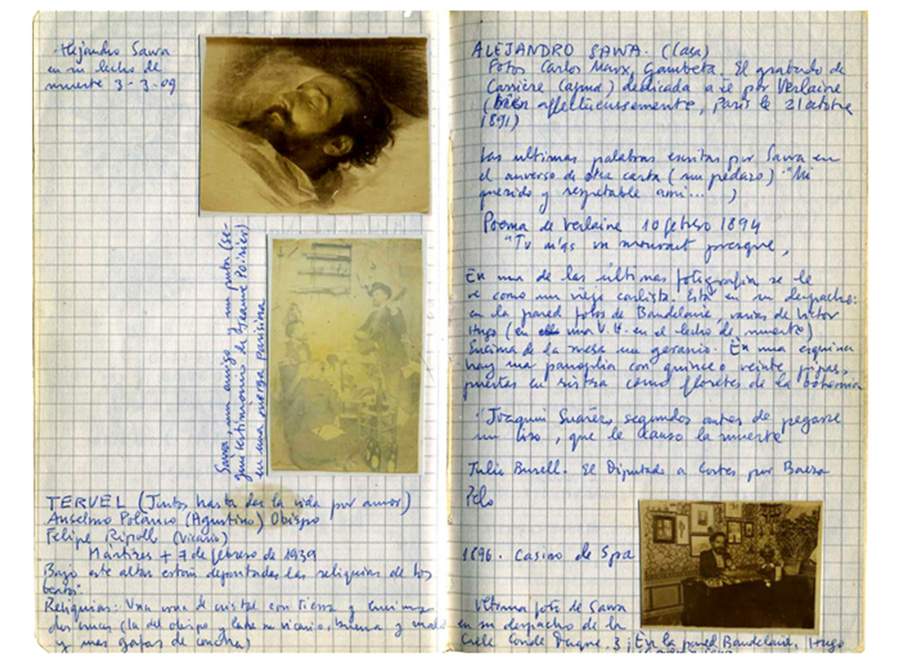 Alejandro Sawa
en su lecho de
muerte 3-3-09
Sawa, un amigo y un puta (se-
gún testimonio de Jeanne Poirier)
en una juerga parisina
TERUEL (Juntos hasta dar la vida por amor)
Anselmo Polanco (Agustino) Obispo
Felipe Ripoll (Vicario)
Mártires + 7 de febrero de 1939
"Bajo este altar están depositadas las reliquias de los
beatos".
Reliquias: Una urna de cristal con tierra y encima
dos cruces (la del obispo y la de su vicario, buena y mala
y unas gafas de concha)
ALEJANDRO SAWA. (Casa)
Fotos Carlos Marx, Gambeta. El grabado de
Carriere (agua) dedicada a él por Verlaine
(bien affectueusement, Paris le 21 octubre
1891)
Las ultimas palabras escritas por Sawa en
el anverso de otra carta (un pedazo) "Mi
querido y respetable ami... )
Poema de Verlaine 10 febrero 1894
"Tu m'as vu mourant presque,
En una de las últimas fotografías se le
ve como un viejo carlista. Está en su despacho:
en la pared fotos de Baudelaire, varias de Victor
Hugo (en una V.H. en el lecho de muerte)
Encima de la mesa un geranio. En una esquina
hay una panoplia con quince o veinte pipas,
puestas en ristra como floretes de la bohemia
"Joaquín Suáñez, segundos antes de pegarse
un tiro, que le causo la muerte"
Julio Burell. El Diputado a Cortes por Baeza
Pelo
1896. Casino de Spa
Ultima foto de Sawa
en su despacho de la
Calle Conde Duque, 3; En la pared Baudelaire, Hugo